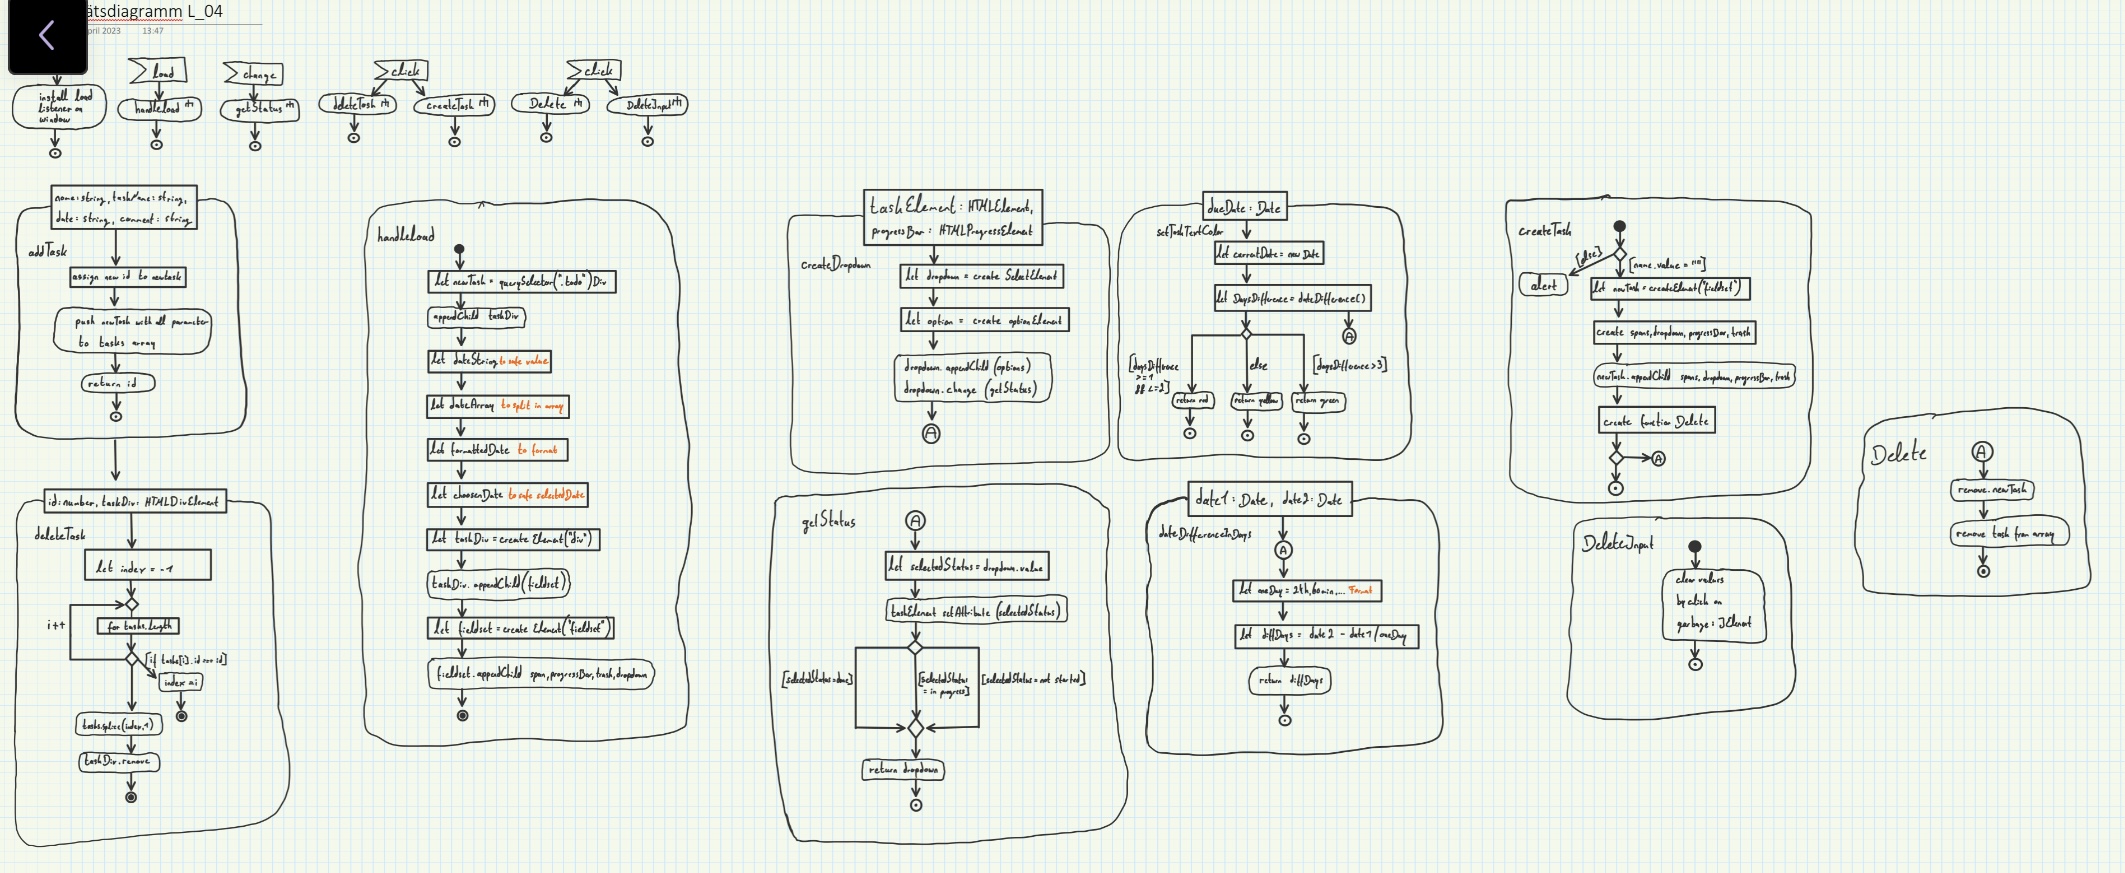 ätsdiagramm L_04
pril 2023 13:47
install load
listener on
window
load
handleload
change
getStatus
click
deleteTask
createTask
click
Delete
DeleteInput
name: string, taskName: string,
date: string, comment: string
addTask
assign new id to newtask
push newTask with all parameter
to tasks array
return id
id: number, taskDiv: HTMLDivElement
deleteTask
let index = -1
i++
for tasks.length
[if tasks[i].id === id]
index = i
tasks.splice(index,1)
taskDiv.remove
handleload
let newTask = querySelector(".todo") Div
appendChild taskDiv
let dateString to safe value
let dateArray to split in array
let formattedDate to format
let choosenDate to safe selectedDate
let taskDiv = create Element("div")
taskDiv. appendChild(fieldset)
let fieldset = create Element("fieldset")
fieldset.appendChild span, progressBar, trash, dropdown
taskElement: HTMLElement,
progressBar: HTMLProgressElement
CreateDropdown
let dropdown = create SelectElement
let option = create optionElement
dropdown.appendChild (options)
dropdown.change (getStatus)
A
getStatus
A
let selectedStatus = dropdown.value
taskElement setAttribute (selectedStatus)
[selectedStatus = done]
[selectedStatus
= in progress]
[selectedStatus = not started]
return dropdown
dueDate: Date
setTaskTextColor
let currentDate = new Date
let DaysDifference = dateDifference()
A
[daysDifference
>= 1
&& <= 2]
else
[daysDifference > 3]
return red
return yellow
return green
date1: Date, date2: Date
dateDifferenceInDays
A
let oneDay = 24h, 60min,... Format
let diffDays = date2 - date1 / oneDay
return diffDays
createTask
[else]
[name.value = ""]
alert
let newTask = createElement("fieldset")
create spans, dropdown, progressBar, trash
newTask.appendChild spans, dropdown, progressBar, trash
create function Delete
A
DeleteInput
clear values
by click on
garbage: IElement
Delete
A
remove.newTask
remove task from array